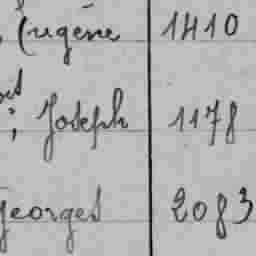 Eugène 1410
; Joseph 1178
Georges 2083